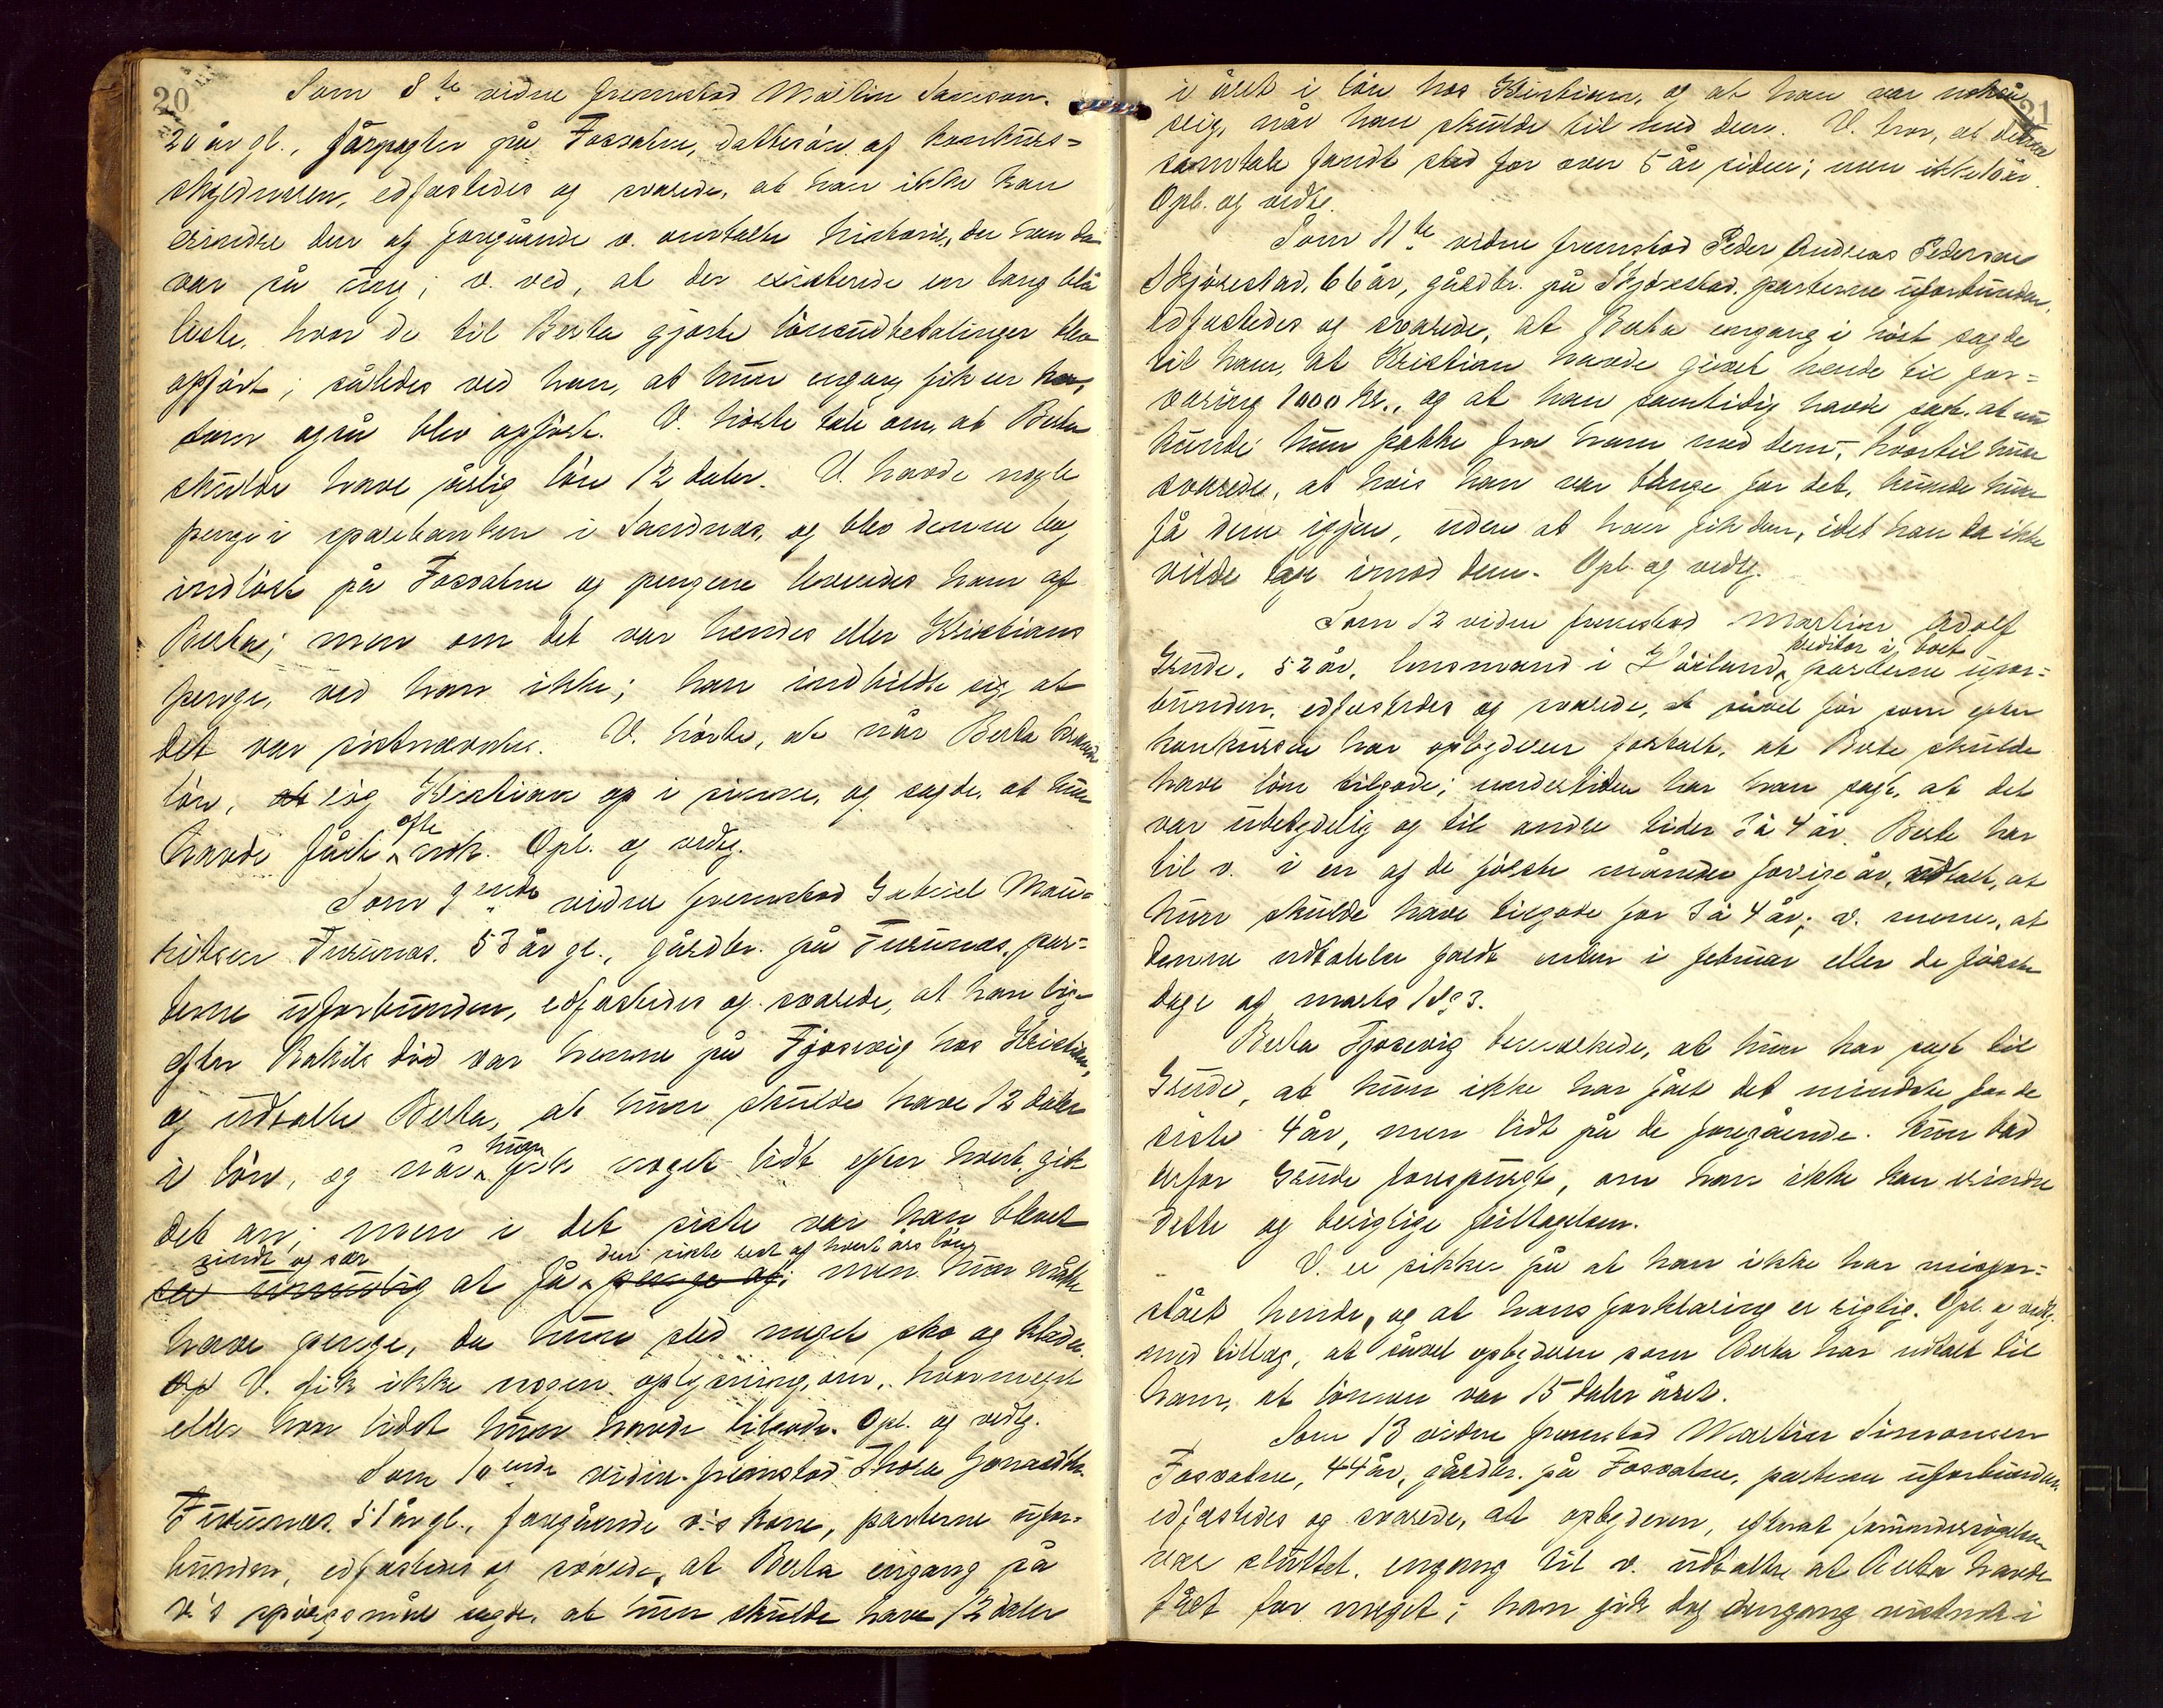 20
Som 8de vidne fremstod Martin Samson.
20 år gl., forpagter på Fossatne, dattersön af konkurs-
skyldneren, edfæstedes og svarede, at han ikke kan
erindre den af foregående v. omtalte historie, da han da
var så ung; v. ved, at der existerede en lang blå
liste, hvor de til Berta gjorte lönsudbetalinger blev
opfört; således ved han, at hun engang fik en
som også blev opfört. V. hörte tale om, at Berta
skulde have årlig lön 12 daler. V. havde nogle
penge i sparebanken i Sandnæs, og blev denne bog
indlöst på Fossatne og pengene leveredes ham af
Berta; men om det var hendes eller Kristians
penge, ved han ikke; han indbildte sig, at
det var sistnævnte. V. hörte, at når Berta krævede
lön, at sig Kristian op i sinne, og sagde, at hun
havde fået ofte nok. Opl. og vedtg.
Som 9ende vidne fremstod Gabriel Mau-
ritsen Furunes. 53 år gl., gårdbr. på Furunes, par-
terne uforbunden, edfæstedes og svarede, at han lige
efter Rakels död var henne på Fjosevig hos Kristian,
og udtalte Berta, at hun skulde have 12 daler
i lön, og når hun fik noget lidt efter hvert, gik
det an; men i det siste var han blevet
sindt og sær
så umulig at få den siste rest af hvert års lön penge af, men hun måtte
have penge, da hun sled meget sko og klæder.
Op V. fik ikke nogen oplysning, om, hvormeget
eller hvor lidet hun havde tilgode. Opl. og vedtg.
Som 10ende vidne fremstod Thora Jonasdtr.
Furunes. 51 år gl., foregående v.'s kone, parterne ufor-
bunden, edfæstedes og svarede, at Berta engang på
v.'s spörgsmål sagde, at hun skulde have 12 daler
21
i året i lön hos Kristian, og at han var nokså
seig, når han skulde til med dem. V. tror, at denne
samtale fandt sted for over 5 år siden; men ikke 10 år.
Opl. og vedtg.
Som 11te vidne fremstod Peder Andreas Pedersen
Skjörestad, 66 år, gårdbr. på Skjörestad, parterne uforbunden,
edfæstedes og svarede, at Berta engang i höst sagde
til ham, at Kristian havde givet hende til for-
varing 1000 kr., og at han samtidig havde sagt, at nu
kunde hun pakke fra ham med dem, hvortil hun
svarede, at hvis han var bange for det, kunde han
få dem igjen, uden at han fik dem, idet han da ikke
vilde tage imod dem. Opl. og vedtg.
Som 12 vidne fremstod Martin Adolf
Grude, 52 år, lensmand i Höiland, kreditor i boet, parterne ufor-
bunden, edfæstedes og svarede, at såvel för som efter
konkursen har opbyderen fortalt, at Berta skulde
have lön tilgode; undertiden har han sagt, at det
var ubetydelig og til andre tider 3 à 4 år. Berta har
til v. i en af de förste måneder forrige år, udtalt, at
hun skulde have tilgode for 3 à 4 år; v. mener, at
denne udtalelse faldt enten i februar eller de förste
dage af marts 1893.
Berta Fjosevig bemærkede, at hun har sagt til
Grude, at hun ikke har fået det mindste for de
siste 4 år, men lidt på de foregående. Hun bad
derfor Grude forespurgt, om han ikke kan erindre
dette og berigtige feiltagelsen.
V. er sikker på at han ikke har misfor-
stået hende, og at hans forklaring er rigtig. Opl. og vedtg.
med tillæg, at såvel opbyderen som Berta har udtalt til
ham, at lönnen var 15 daler året.
Som 13 vidne fremstod Martin Simonsen
Fosvatne, 44 år, gårdbr. på Fosvatne, parterne uforbunden,
edfæstedes og svarede, at opbyderen, efterat forundersögelsen
var sluttet, engang til v. udtalte at Berta havde
fået for meget; han gik dog dengang